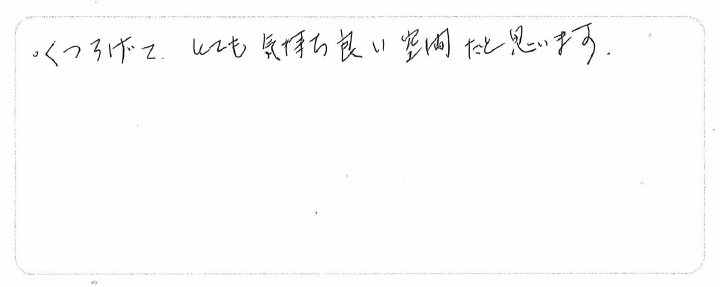 ・くつろげて、とても気持ち良い空間だと思います。